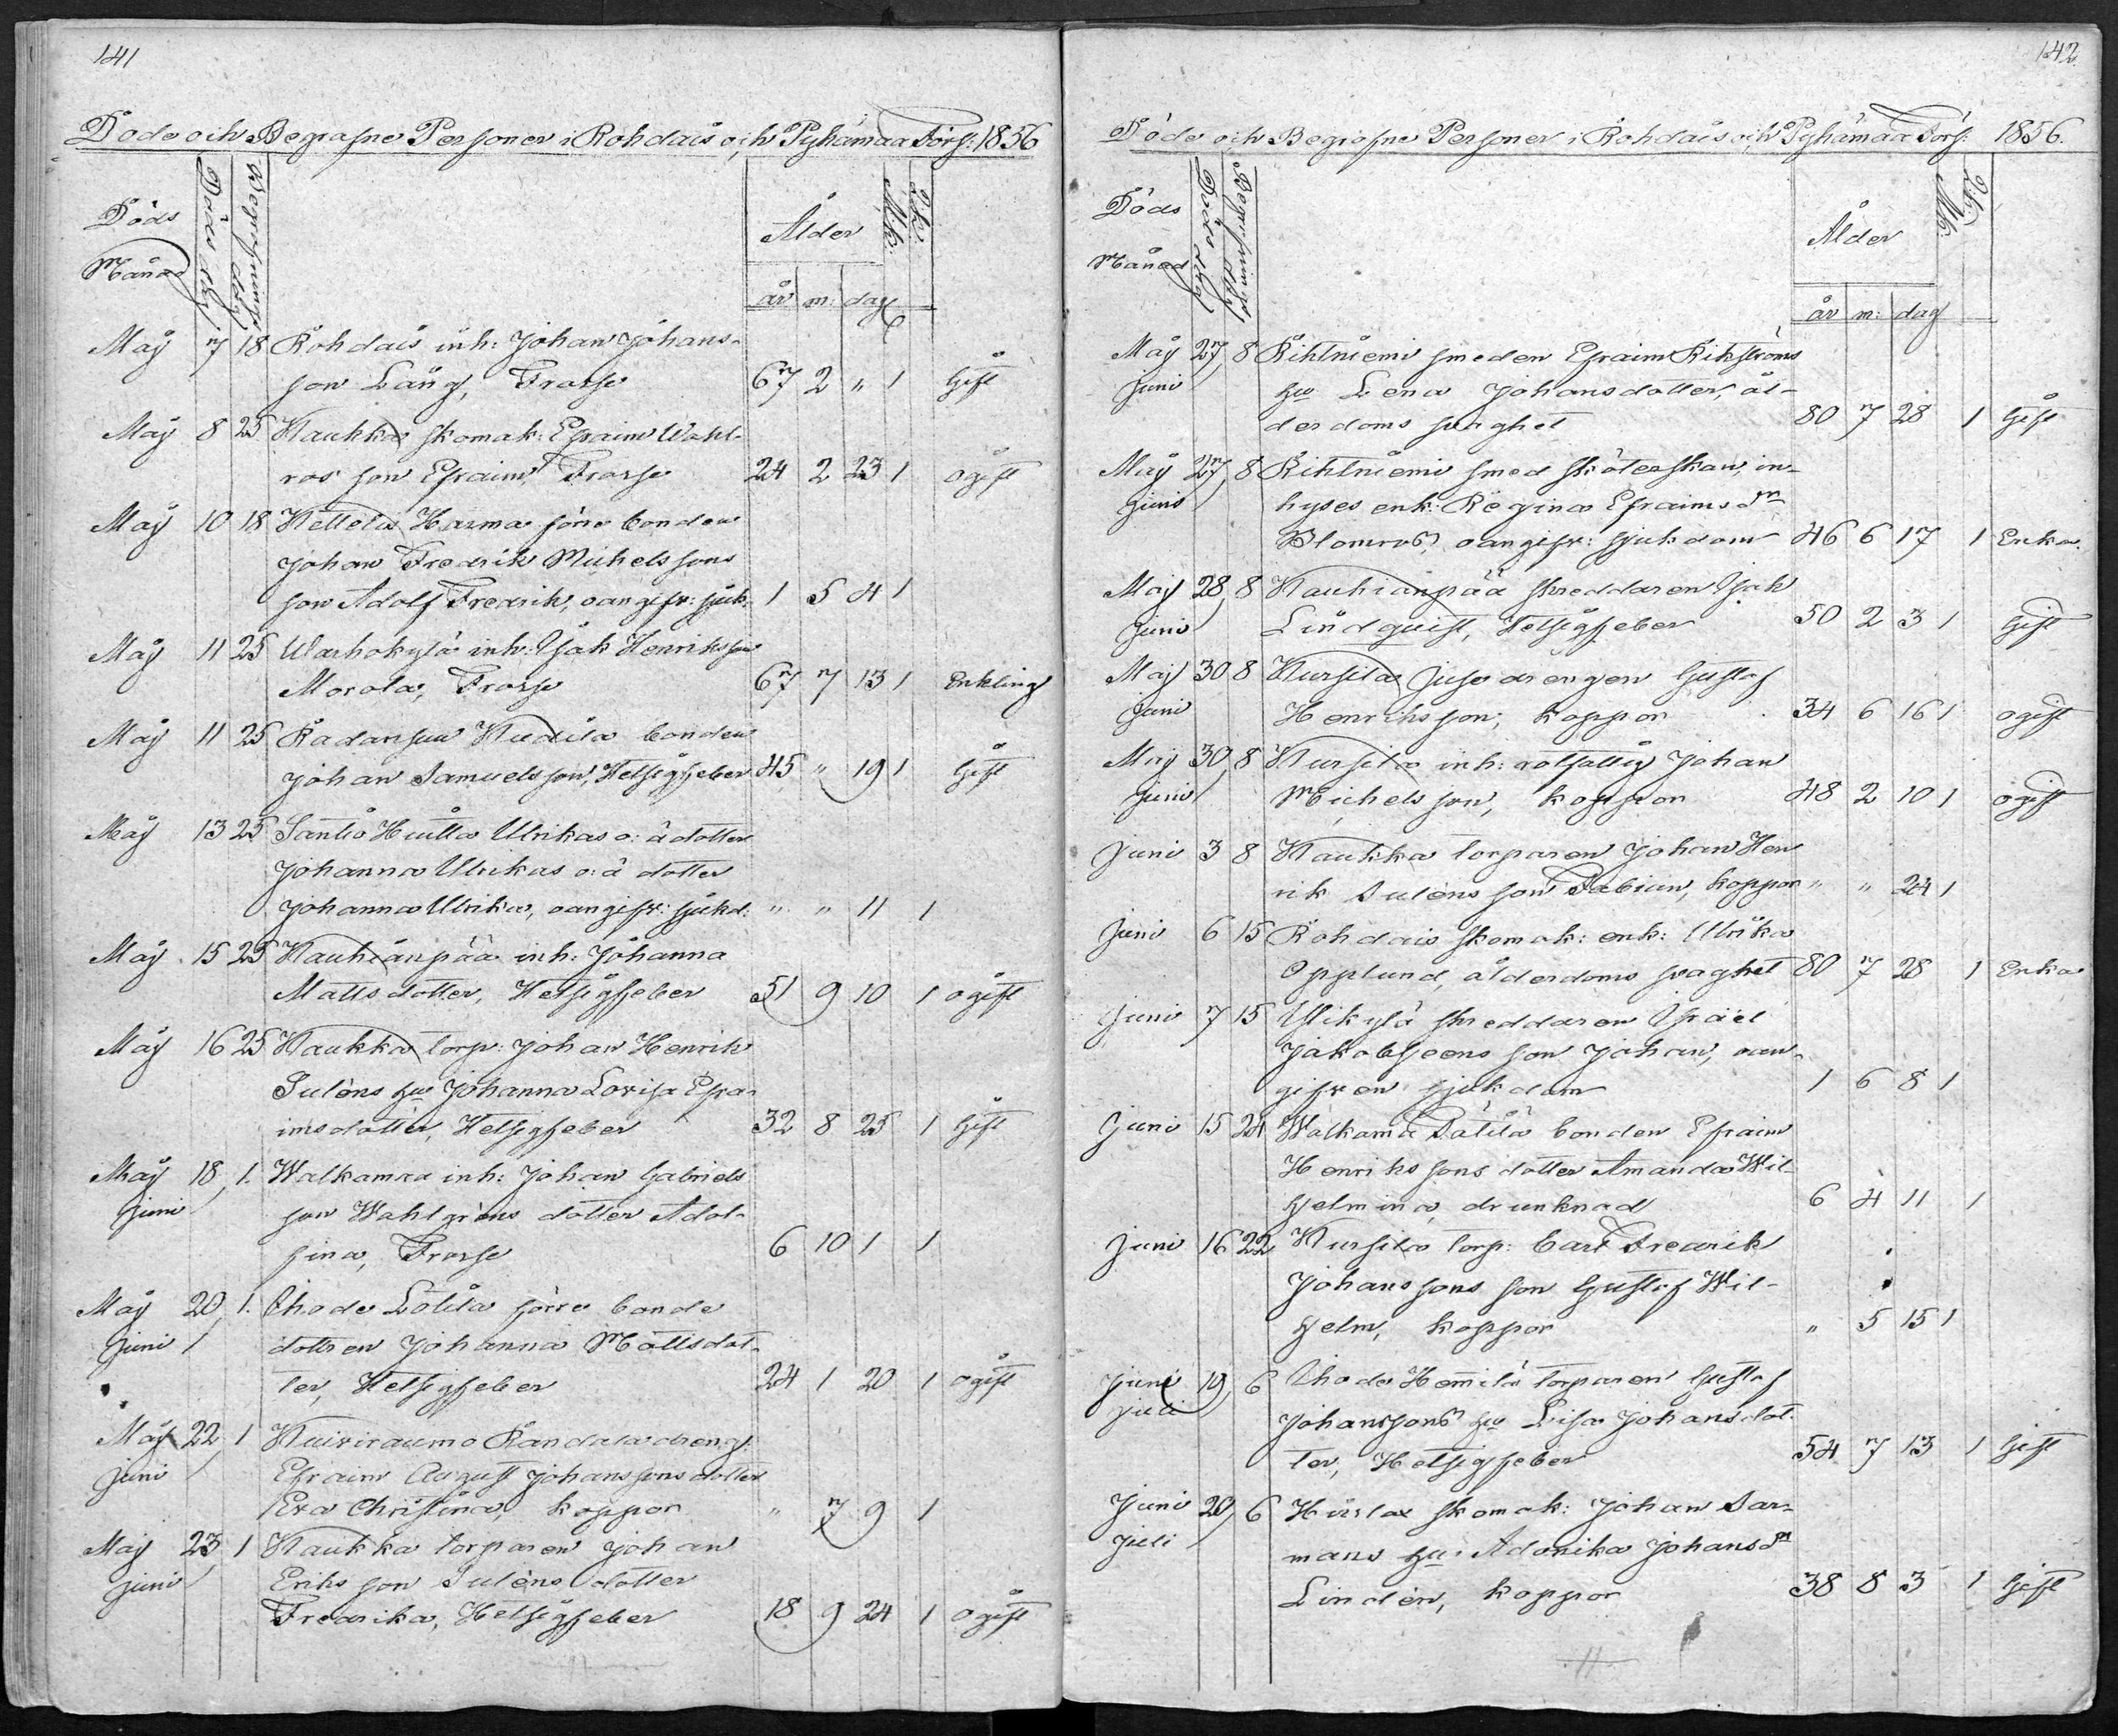 141
Döde och Begrafne Personer i Rohdais och Pyhämaa Förs: 1856
Döds Månad Döds dag Begrafnings dag Ålder Mk: Qk:
år m: dag
Maij 7 18 Rohdais inh: Johan Johans-
son Läng, Frosse 67 2 " 1 Gift
Maij 8 25 Kaukka skomak: Efraim Wahl-
ros son Efraim, Frosse 24 2 23 1 ogift
Maij 10 18 Kettela Harma söne bonden
Johan Fredrik Michelssons
son Adolf Fredrik, oangifv: sjuk: 1 5 4 1
Maij 11 25 Warhokylä inh: Isak Henriksson
Morola, Frosse 67 7 13 1 Enkling
Maij 11 25 Radansuu Kudila bonden
Johan Samuelsson, Hetsigfeber 45 " 19 1 Gift
Maij 13 25 Santio Hutta Ulrikas o: ä dotter
Johanna Ulrikas o: ä dotter
Johanna Ulrika, oangifv: sjukd: " " 11 1
Maij 15 25 Kauhianpää inh: Johanna
Mattsdotter, Hetsigfeber 51 9 10 1 ogift
Maij 16 25 Kaukka torp: Johan Henrik
Juléns hu Johanna Lovisa Efra-
imsdotter, Hetsigfeber 32 8 25 1 Gift
Maij 18, 1. Walkamaa inh: Johan Gabriels
Juni son Wahlgréns dotter Adol-
fina, Frosse 6 10 1 1
Maij 20, 1. Ihode Lölila förre bonde
Juni dottren Johanna Mattsdot-
ter, Hetsigfeber 24 1 20 1 ogift
Maij 22, 1 Kuiviraumo Randala dreng:
Juni Efraim August Johanssons dotter
Eva Christina, koppor " 7 9 1
Maij 23, 1 Kaukka torparen Johan
Juni Eriks son Juléns dotter
Fredrika, Hetsigfeber 18 9 24 1 ogift
142.
Döde och Begrafne Personer i Rohdais och Pyhämaa Förs: 1856.
Döds Månad Döds dag Begrafnings dag Ålder Mk: Qk:
år m: dag
Maij 27, 8 Rihtniemi smeden Efraim Rikströms
Juni hu Lena Johansdotter, ål-
derdoms svaghet 80 7 28 1 Gift
Maij 27, 8 Rihtniemi smed sköterskan, in-
Juni hyses enk: Regina Efraims dr
Blomros, oangifv: sjukdom 46 6 17 1 Enka.
Maij 28, 8 Kauhianpää skreddaren Isak
Juni Lindquist, Hetsigfeber 50 2 3 1 Gift
Maij 30 8 Kursila Juse drengen Gustaf
Juni Henriksson, koppor 34 6 16 1 ogift
Maij 30, 8 Kursila inh: rotfattig Johan
Juni Michelsson, koppor 48 2 10 1 ogift
Juni 3 8 Kaukka torparen Johan Hen
rik Juléns son Fabian, koppor " " 24 1
Juni 6 15 Rohdais skomak: enk: Ulrika
Opplund, ålderdoms svaghet 80 7 28 1 Enka
Juni 7 15 Ylikylä skreddaren Israel
Jakobssons son Johan, oan-
gifven sjukdom 1 6 8 1
Juni 15 24 Walkama Sälilä bonden Efraim
Henrikssons dotter Amanda Wil
helmina, drunknad 6 4 11 1
Juni 16 22 Kursila torp: Carl Fredrik
Johanssons son Gustaf Wil-
helm, koppor " 5 15 1
Juni 19, 6 Ihode Hemilä torparen Gustaf
Juli Johanssons hu Lisa Johansdot-
ter, Hetsigfeber 54 7 13 1 Gift
Juni 20, 6 Hirslax skomak: Johan Sar-
Juli mans hu: Adonika Johansdr
Lindén, koppor 38 8 3 1 Gift